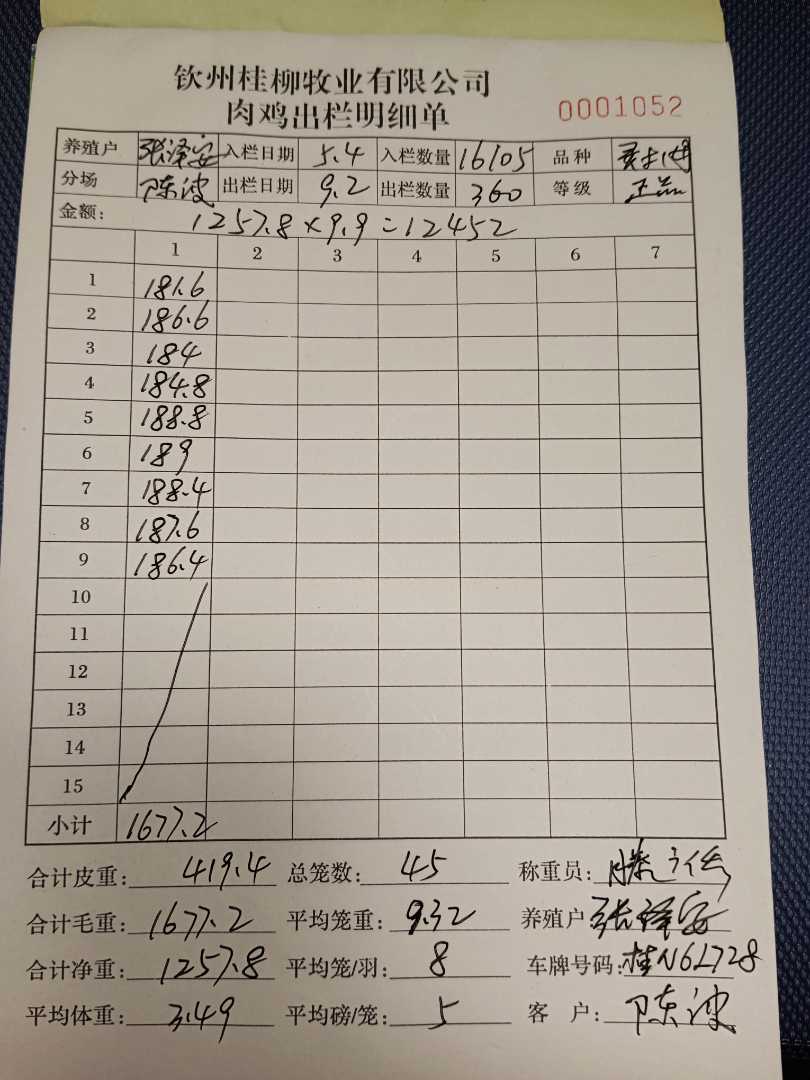 钦州桂柳牧业有限公司
肉鸡出栏明细单 0001052
养殖户 张泽安 入栏日期 5.4 入栏数量 16105 品种
分场 陈波 出栏日期 9.2 出栏数量 360 等级 正品
金额: 1257.8×9.9=12452
1 2 3 4 5 6 7
1 181.6
2 186.6
3 184
4 184.8
5 188.8
6 189
7 188.4
8 187.6
9 186.4
10
11
12
13
14
15
小计 1677.2
合计皮重: 419.4 总笼数: 45 称重员:
合计毛重: 1677.2 平均笼重: 9.32 养殖户 张泽安
合计净重: 1257.8 平均笼/羽: 8 车牌号码: 桂N6L728
平均体重: 3.49 平均磅/笼: 5 客 户: 陈波